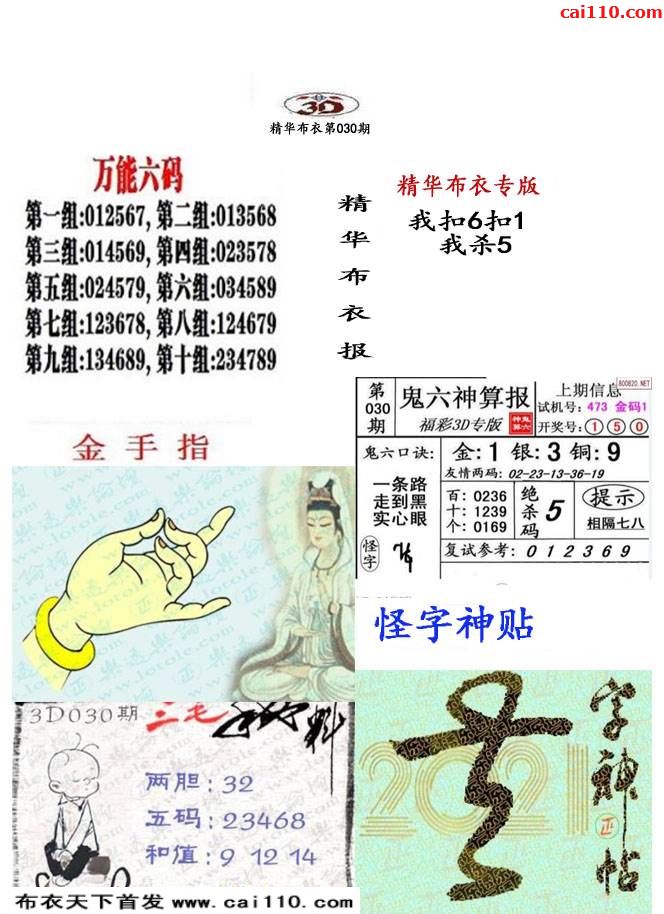 cai110.com
3D
精华布衣第030期
万能六码
第一组:012567, 第二组:013568
第三组:014569, 第四组:023578
第五组:024579, 第六组:034589
第七组:123678, 第八组:124679
第九组:134689, 第十组:234789
精华布衣报
精华布衣专版
我扣6扣1
我杀5
金手指
第030期
鬼六神算报
福彩3D专版
上期信息
800820.NET
试机号: 473 金码1
开奖号: 1 5 0
鬼六口诀:
一条路
走到黑
实心眼
金: 1 银: 3 铜: 9
友情两码: 02-23-13-36-19
百: 0236
十: 1239
个: 0169
绝杀码 5
提示
相隔七八
怪字
复试参考: 0 1 2 3 6 9
怪字神贴
3D030期
三毛
料
两胆: 32
五码: 23468
和值: 9 12 14
2021
字神帖
正
布衣天下首发 www.cai110.com